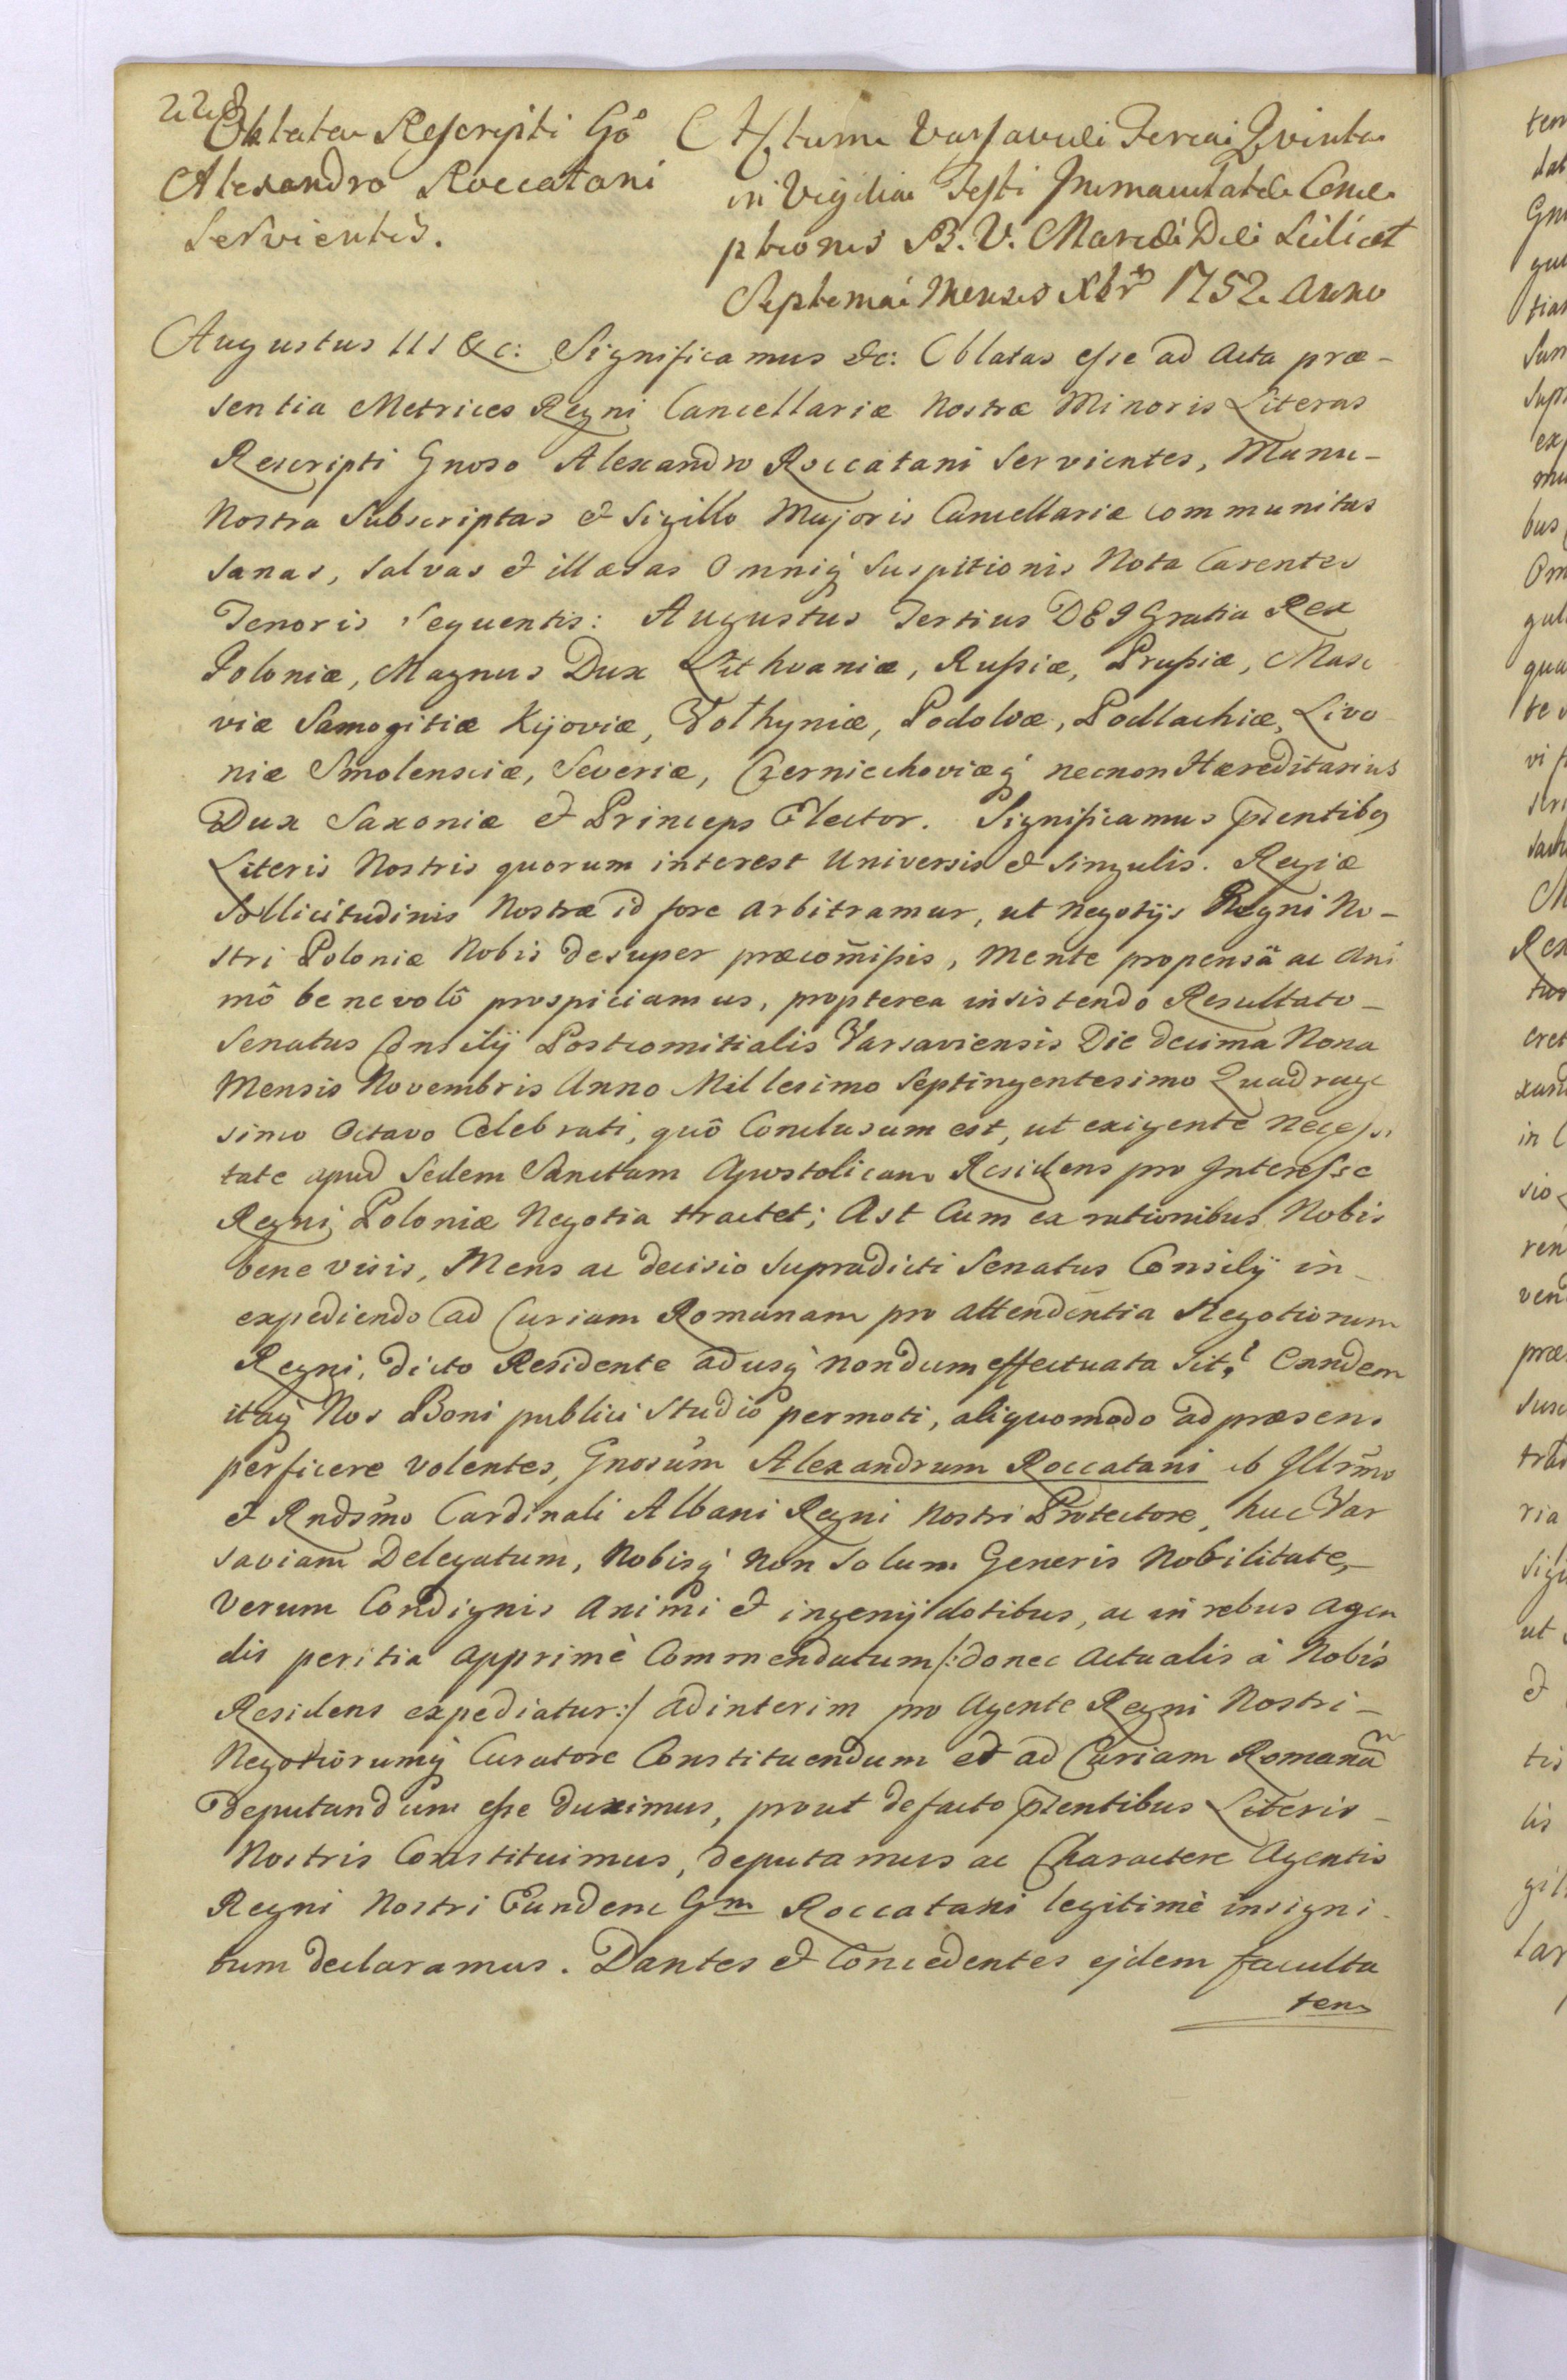 228
Oblata Rescripti Gō
Alexandro Roccatani
Servientis.
Actum Varsaviæ Feria Quinta
in Vigilia Festi Immaculatæ Conce
ptionis B. V. Mariæ Die Scilicet
Septima Mensis Xbris 1752. Anno
Augustus III &c: Significamus &c: Oblatas esse ad Acta præ-
sentia Metrices Regni Cancellariæ Nostræ Minoris Literas
Rescripti Gnoso Alexandro Roccatani Servientes, Manu-
Nostra Subscriptas & Sigillo Majoris Cancellariæ communitas
Sanas, Salvas & illæsas Omniq́ Suspitionis Nota Carentes
Tenoris Sequentis: Augustus Tertius DEI Gratia Rex
Poloniæ, Magnus Dux Lithvaniæ, Russiæ, Prussiæ, Maso
viæ Samogitiæ Kijoviæ, Volhyniæ, Podoliæ, Podlachiæ, Livo
niæ Smolensciæ, Severiæ, Czerniechoviæq́ necnon Hæreditarius
Dux Saxoniæ & Princeps Elector. Significamus p̄sentibq
Literis Nostris quorum interest Universis & Singulis. Regiæ
Sollicitudinis Nostræ id fore arbitramur, ut negotijs Regni No-
stri Poloniæ Nobis desuper præcom̄issis, Mente propensâ ac Ani
mô benevolô prospiciamus, propterea insistendo Resultato-
Senatus Consilij Postcomitialis Varsaviensis Die decima Nona
Mensis Novembris Anno Millesimo Septingentesimo Quadrage
simo Octavo Celebrati, quô Conclusum est, ut exigente Necessi
tate apud Sedem Sanctam Apostolicam Residens pro Interesse
Regni Poloniæ Negotia tractet; Ast Cum ex rationibus Nobis
bene visis, Mens ac decisio Supradicti Senatus Consilij in-
expediendo ad Curiam Romanam pro attendentia Negotiorum
Regni, dicto Residente adusq́ nondum effectuata sit, Eandem
itaq́ Nos Boni publici Studio permoti, aliquomodo ad præsens
perficere Volentes, Gnosum̄ Alexandrum Roccatani ab Illr̄mo
& Rndsm̄o Cardinali Albani Regni Nostri Protectore, huc Var
saviam Delegatum, Nobisq́ Non Solum Generis Nobilitate,-
Verum Condignis Animi & ingenij dotibus, ac in rebus agen
dis peritia apprimè Commendatum /: donec Actualis à Nobis
Residens expediatur:/ adinterim pro Agente Regni Nostri-
Negotiorumq́ Curatore Constituendum et ad Curiam Romanam
deputandum esse duximus, prout defacto p̄sentibus Literis-
Nostris Constituimus, deputamus ac Charactere Agentis
Regni Nostri Eundem Gm Roccatani legitimè insigni-
tum declaramus. Dantes & Concedentes ejdem faculta
tem